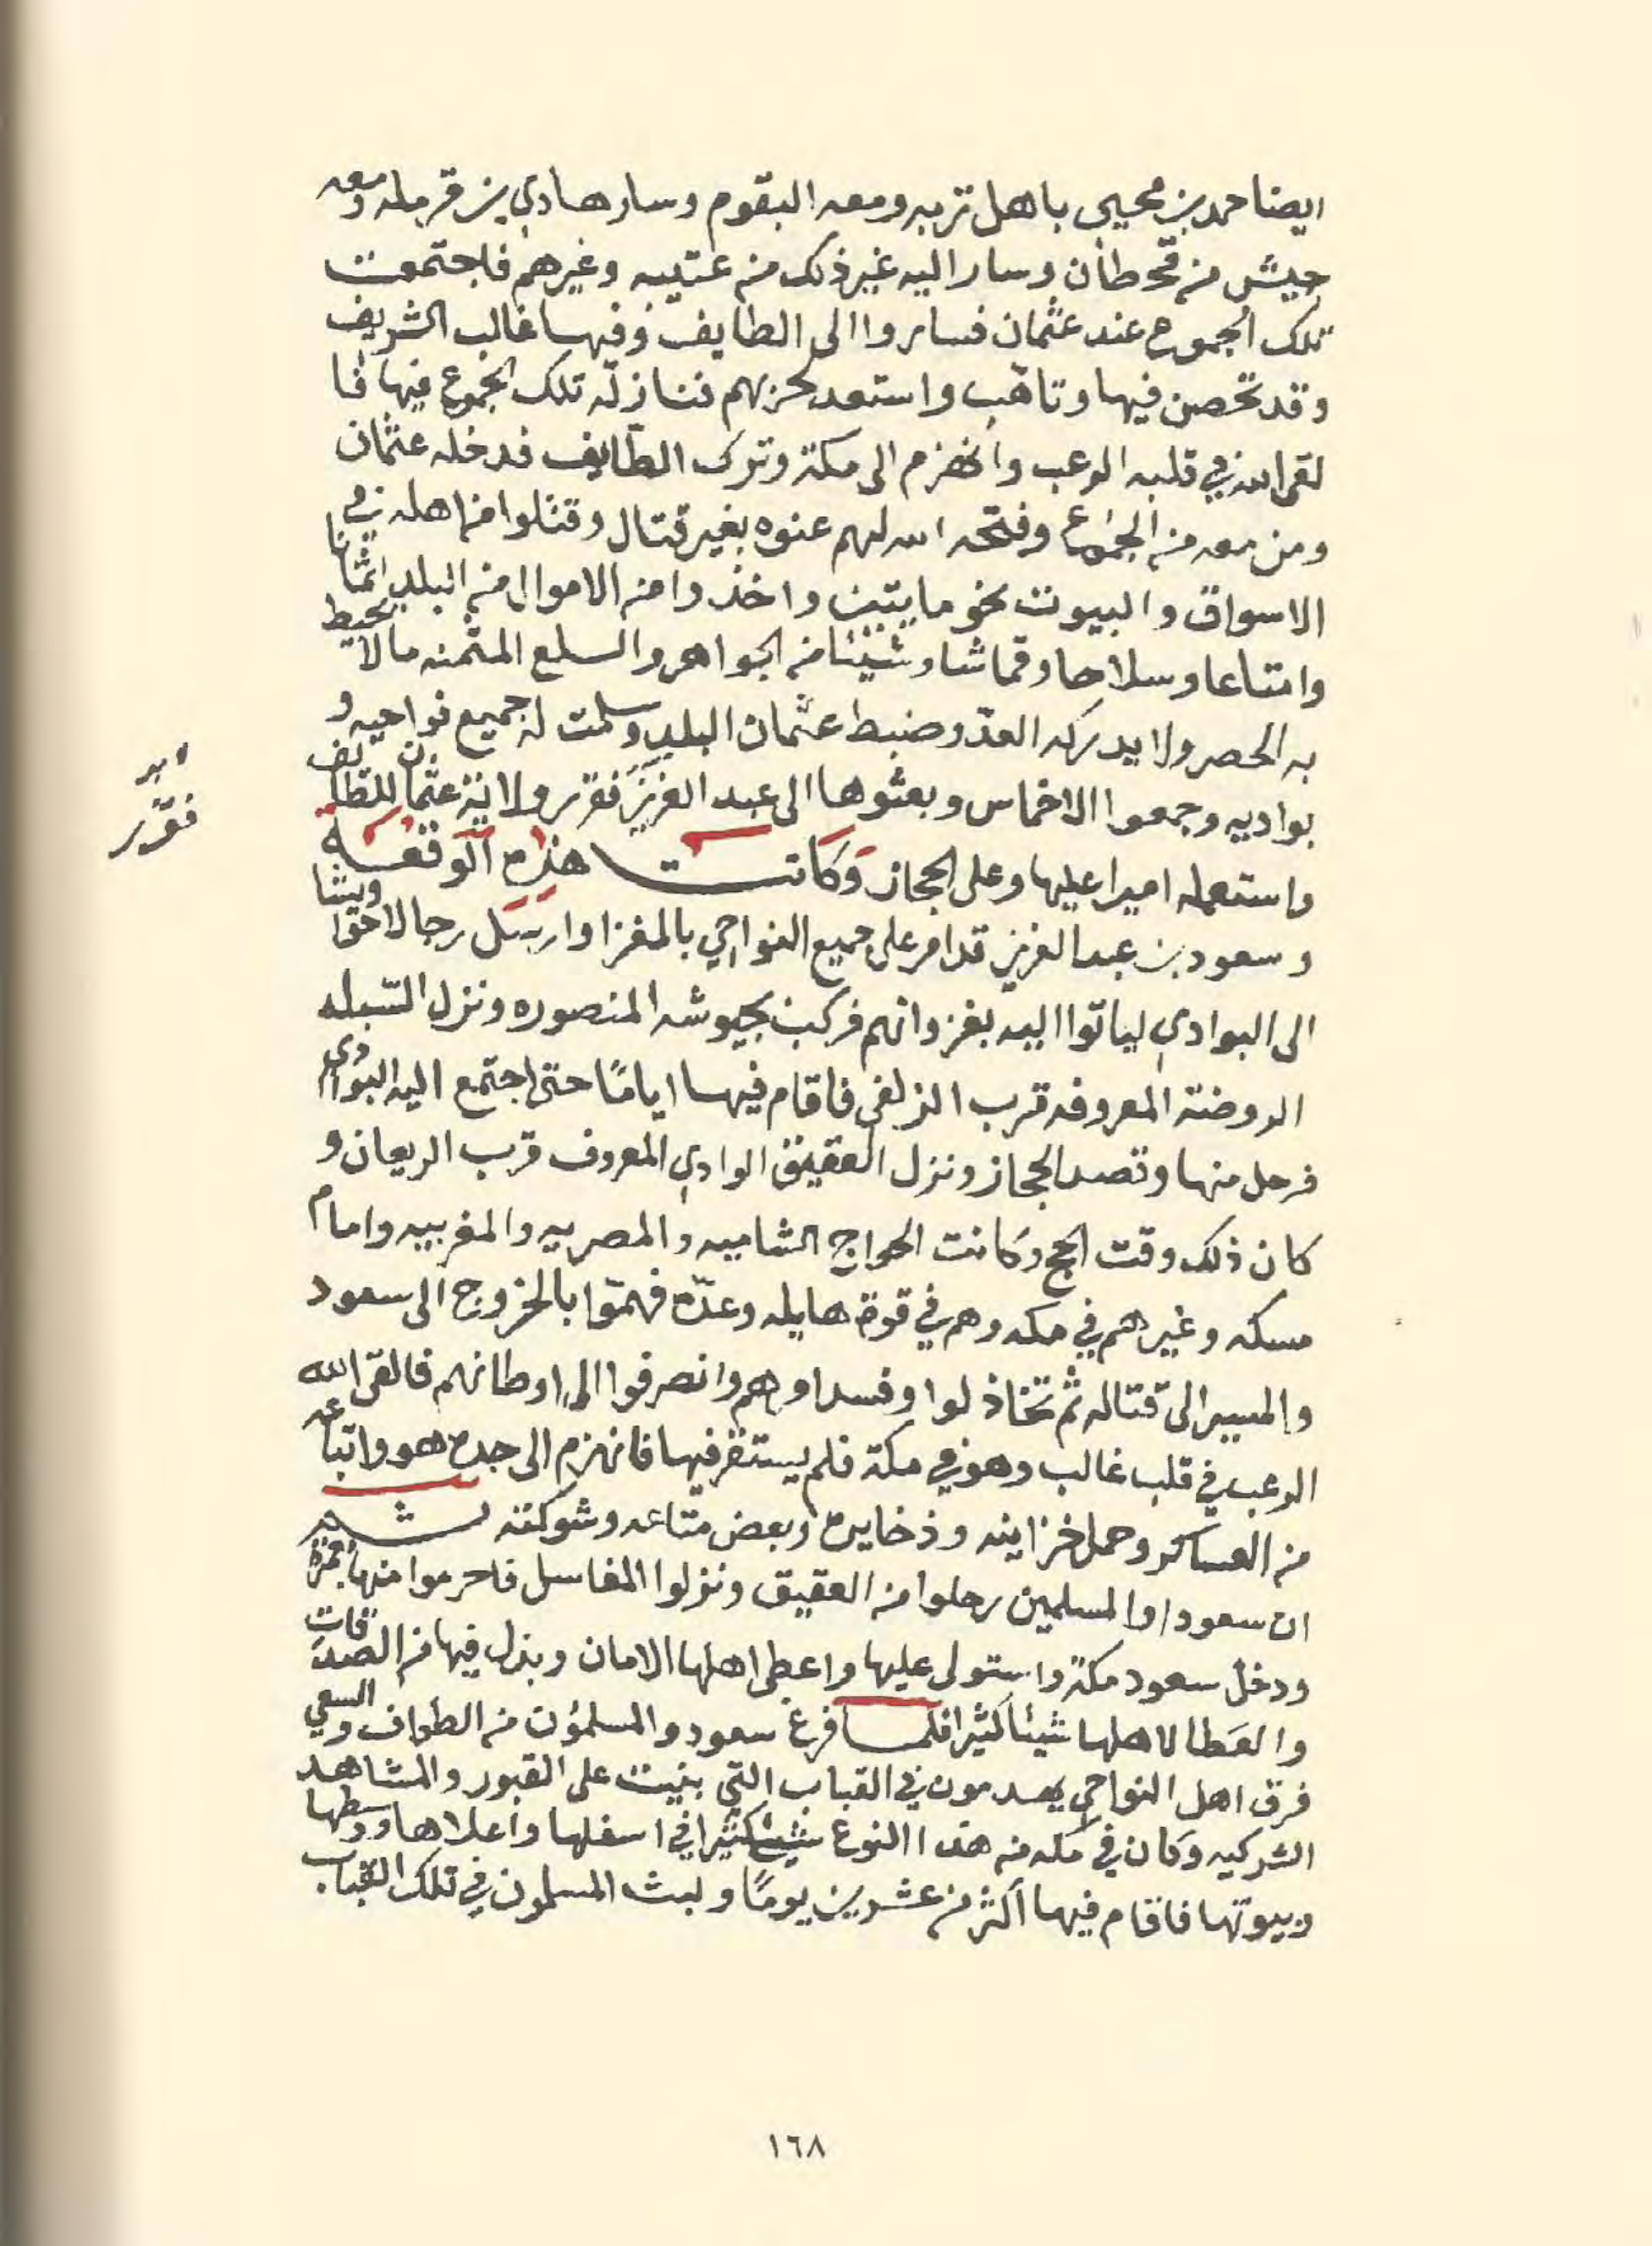 ايضا حمد بن محيى باهل تربه ومعه البقوم وسار هادي بن قرمله ومعه
جيش من قحطان وسار اليه غير ذلك من عتيبه وغيرهم فاجتمعت
تلك الجموع عند عثمان فساروا الى الطايف وفيها غالب الشريف
وقد تحصن فيها وتاهب واستعد لحربهم فنازلته تلك الجموع فيها فا
لقى الله في قلبه الرعب وانهزم الى مكة وترك الطايف فدخله عثمان
ومن معه من الجموع وفتحه الله لهم عنوه بغير قتال وقتلوا من اهله في
الاسواق والبيوت نحو مايتين واخذوا من الاموال من البلد اثمانا
وامتاعا وسلاحا وقماشا وشيئا من الجواهر والسلع المثمنه مالا يحيط
به الحصر ولا يدركه العد وضبط عثمان البلد وسلمت له جميع نواحيه و
بواديه وجمعوا الاخماس وبعثوها الى عبد العزيز فقرر ولاية عثمان للطايف
امير
فقرر
واستعمله اميرا عليها وعلى الحجاز وكانت هذه الوقعة
وسعود بن عبد العزيز قد امر على جميع النواحي بالمغزا وارسل رجالا حواويشا
الى البوادي لياتوا اليه بغزوانهم فركب بجيوشه المنصوره ونزل السبله
الروضة المعروفه قرب الزلفي فاقام فيها اياما حتى اجتمع اليه البوادي
فرحل منها وقصد الحجاز ونزل العقيق الوادي المعروف قرب الريعان و
كان ذلك وقت الحج وكانت الحواج الشاميه والمصريه والمغربيه وامام
مسكه وغيرهم في مكه وهم في قوة هايله وعده فهموا بالخروج الى سعود
والمسير الى قتاله ثم تخاذلوا وفسد امرهم وانصرفوا الى اوطانهم فالقى الله
الرعب في قلب غالب وهو في مكة فلم يستقر فيها فانهزم الى جده هو واتباعه
من العساكر وحمل خزاينه وذخايره وبعض متاعه وشوكته ثم
ان سعودا والمسلمين رحلوا من العقيق ونزلوا المغاسل فاحرموا منها بعمرة
ودخل سعود مكة واستولى عليها واعطى اهلها الامان وبذل فيها من الصدقات
والعطا لاهلها شيئا كثيرا فلما فرغ سعود والمسلمون من الطواف والسعي
فرق اهل النواحي يهدمون في القباب التي بنيت على القبور والمشاهد
الشركيه وكان في مكه من هذا النوع شيئ كثيرا في اسفلها واعلاها ووسطها
وبيوتها فاقام فيها اكثر من عشرين يوما ولبث المسلمون في تلك القباب
١٦٨